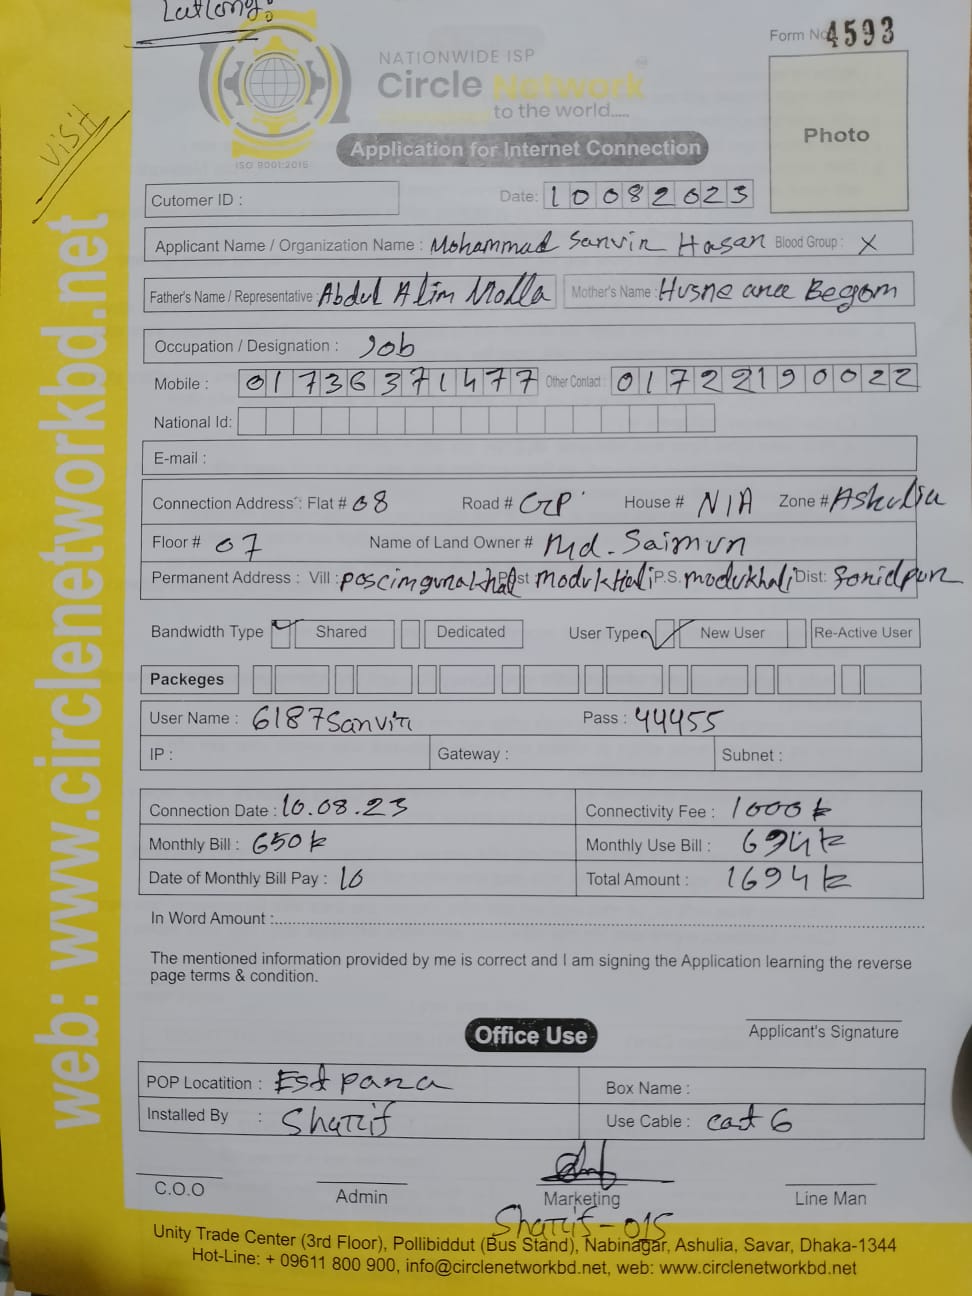 Latlong:
Form No 4593
VISIT
NATIONWIDE ISP
Circle Network
to the world.....
ISO 9001:2015
Application for Internet Connection
Photo
Cutomer ID :
Date: 10082023
Applicant Name / Organization Name : Mohammad Sanvir Hasan Blood Group : X
Father's Name / Representative : Abdul Alim Molla Mother's Name : Husne ana Begom
Occupation / Designation : Job
Mobile : 01736371477 Other Contact : 01722190022
National Id:
E-mail :
Connection Address : Flat # 08 Road # House # N/A Zone # Ashulia
Floor # 07 Name of Land Owner # Md. Saimun
Permanent Address : Vill : Post modukhali P.S. modukhali Dist:
Bandwidth Type Shared Dedicated User Type New User Re-Active User
Packeges
User Name : 6187Sanvir Pass : 44455
IP : Gateway : Subnet :
Connection Date : 10.08.23 Connectivity Fee : 1000 tk
Monthly Bill : 650 tk Monthly Use Bill : 694 tk
Date of Monthly Bill Pay : 10 Total Amount : 1694 tk
In Word Amount :
The mentioned information provided by me is correct and I am signing the Application learning the reverse
page terms & condition.
Applicant's Signature
Office Use
POP Locatition : Est para Box Name :
Installed By : Sharif Use Cable : cat 6
C.O.O Admin Marketing Line Man
Sharif - 015
Unity Trade Center (3rd Floor), Pollibiddut (Bus Stand), Nabinagar, Ashulia, Savar, Dhaka-1344
Hot-Line: + 09611 800 900, info@circlenetworkbd.net, web: www.circlenetworkbd.net
web: www.circlenetworkbd.net